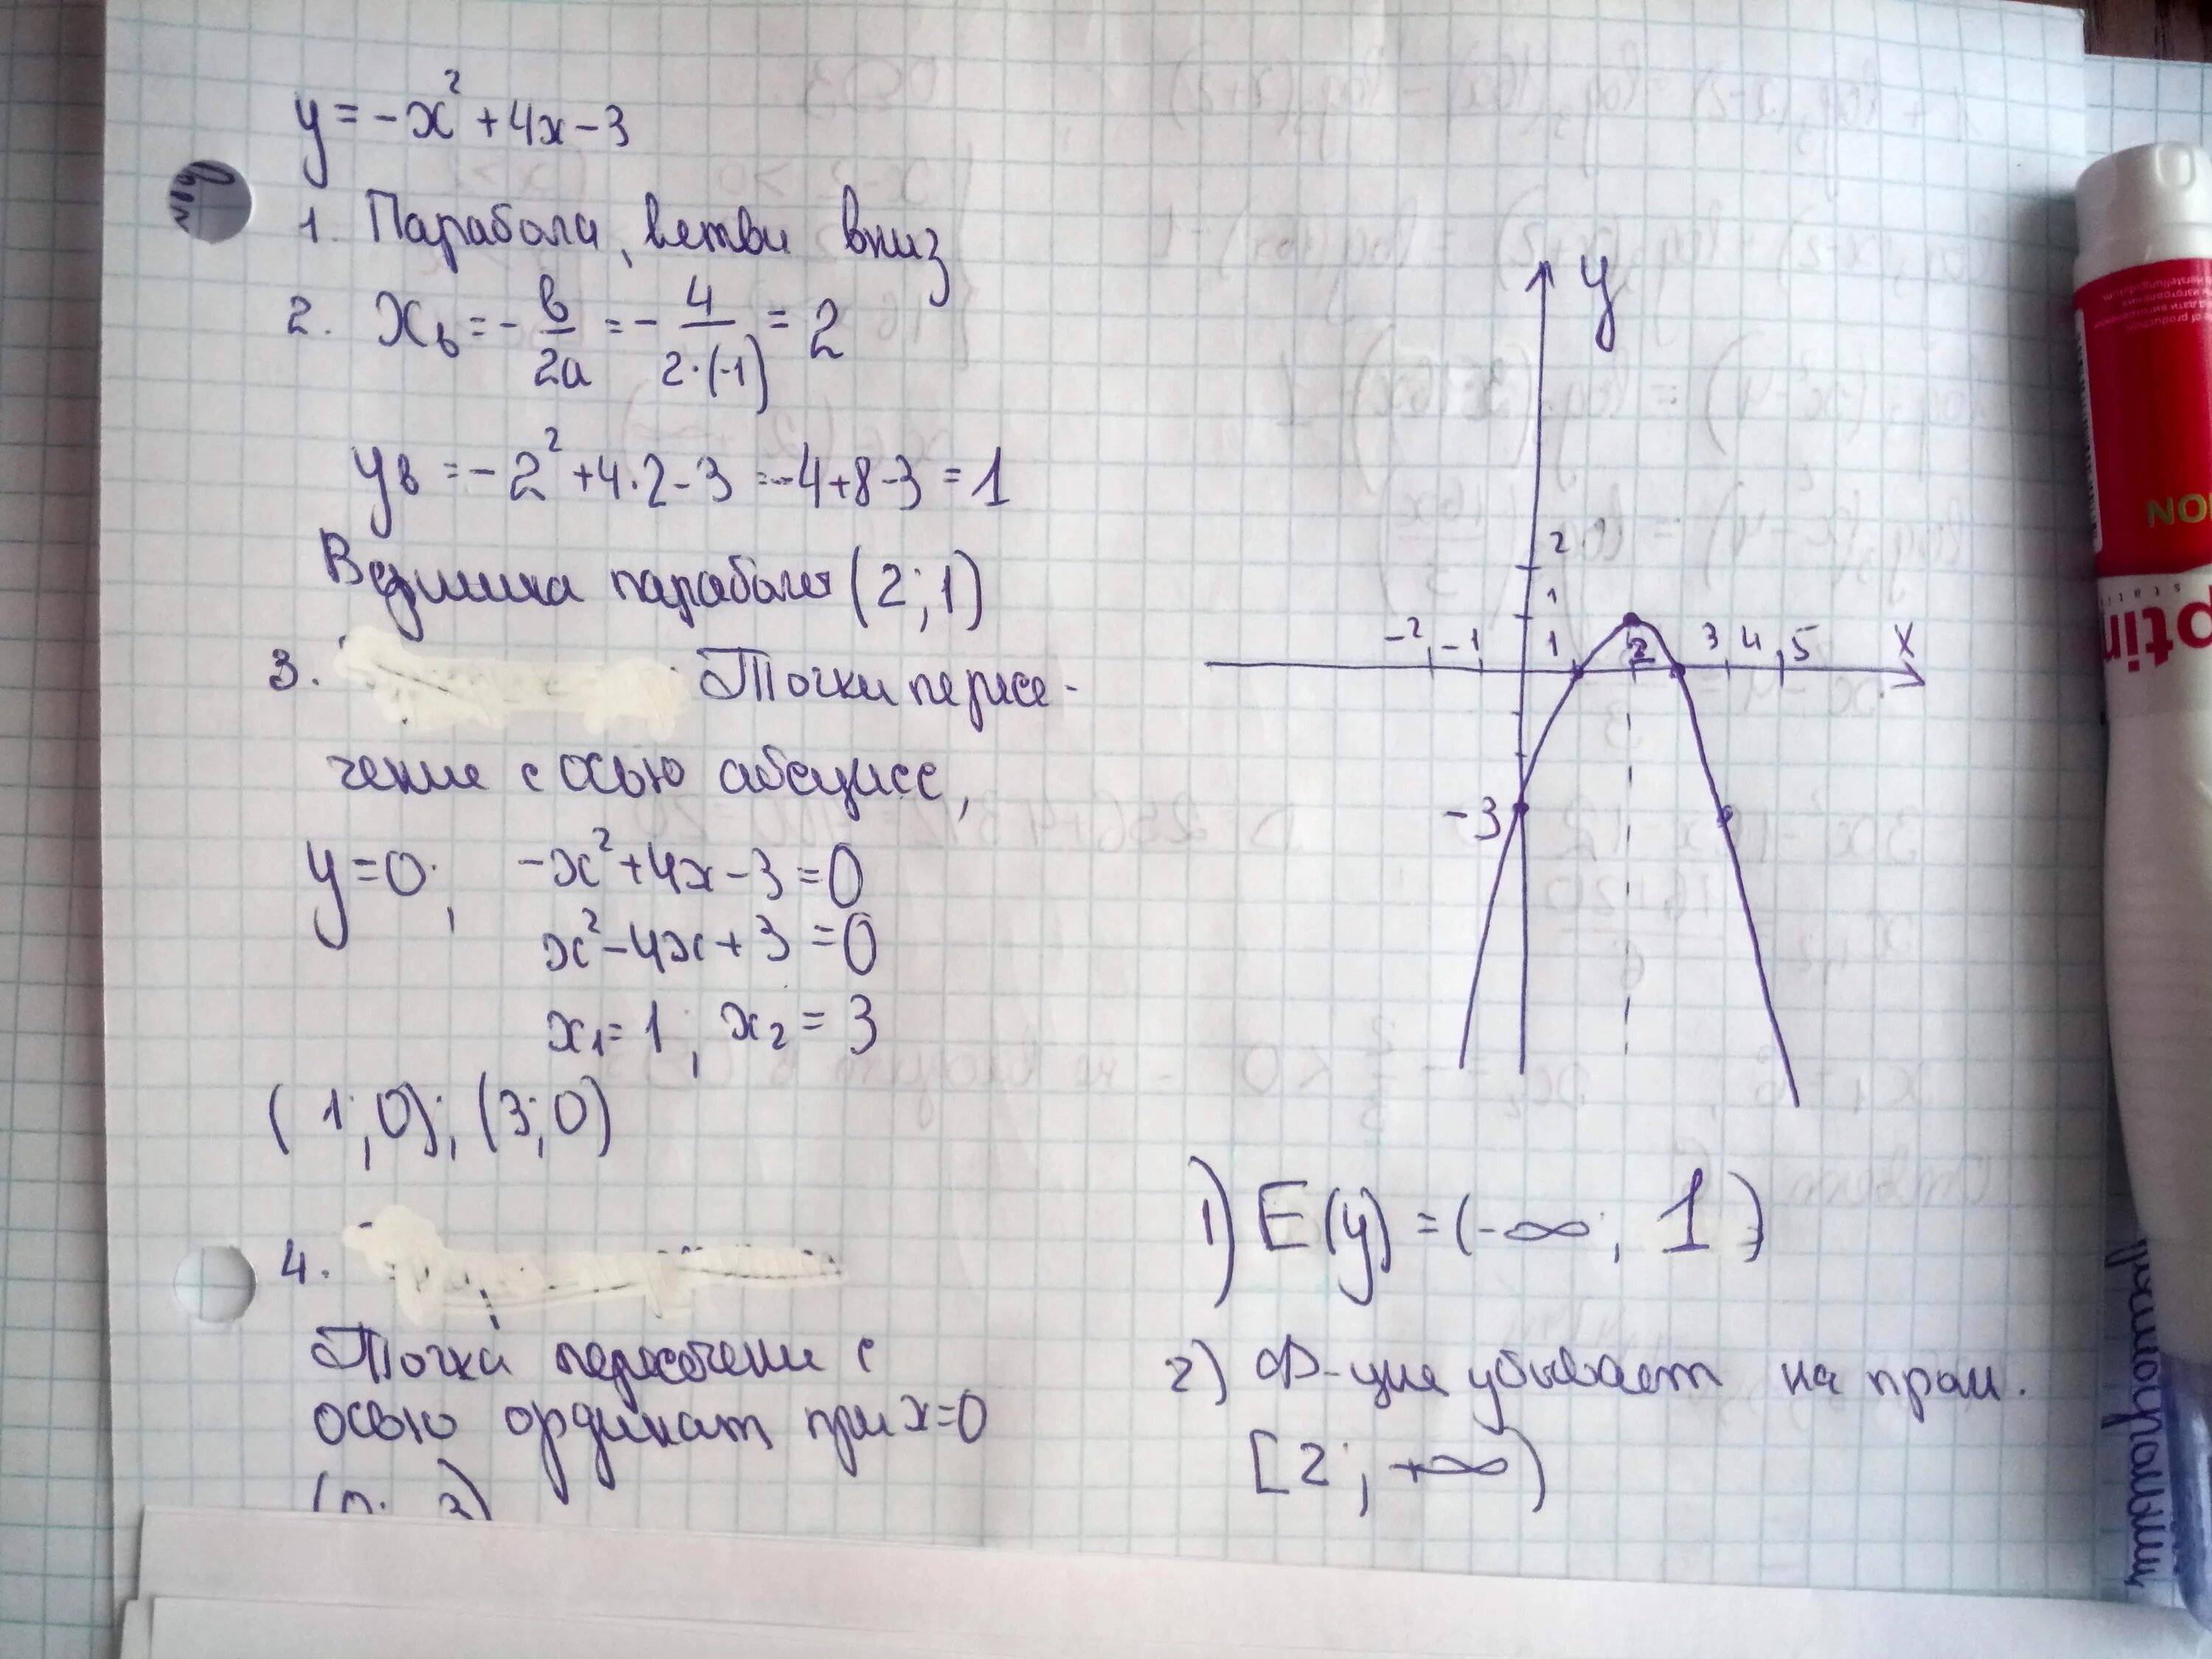 y = -x² + 4x - 3
1. Парабола, ветви вниз
2. xв = - в/2a = - 4/(2·(-1)) = 2
yв = -2² + 4·2 - 3 = -4 + 8 - 3 = 1
Вершина параболы (2; 1)
3. Точки пересе-
чение с осью абсцисс,
y = 0; -x² + 4x - 3 = 0
x² - 4x + 3 = 0
x₁ = 1; x₂ = 3
(1; 0); (3; 0)
4.
Точка пересечени с
осью ординат при x = 0
y
2
1
-2 -1 1 2 3 4 5 x
-3
1) E(y) = (-∞; 1)
2) Ф-ция убывает на пром.
[2; +∞)
ON
ptin